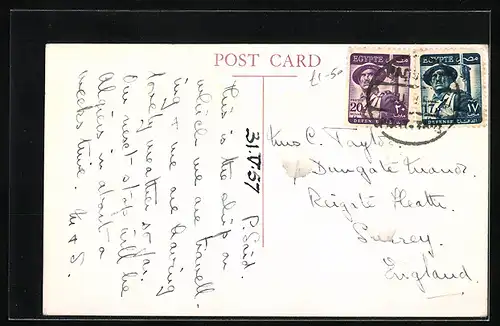 POST CARD
£1-50
EGYPTE مصر
20
٢٠
DEFENSE
EGYPTE مصر
17 ١٧
DEFENSE
P. Said.
31.V.57
This is the ship on
which we are travell-
ing & we are having
lovely weather so far.
Our next stop will be
Algiers in about a
weeks time.
Mrs C. Taylor.
Dungate Manor.
Reigate Heath.
Surrey.
England.